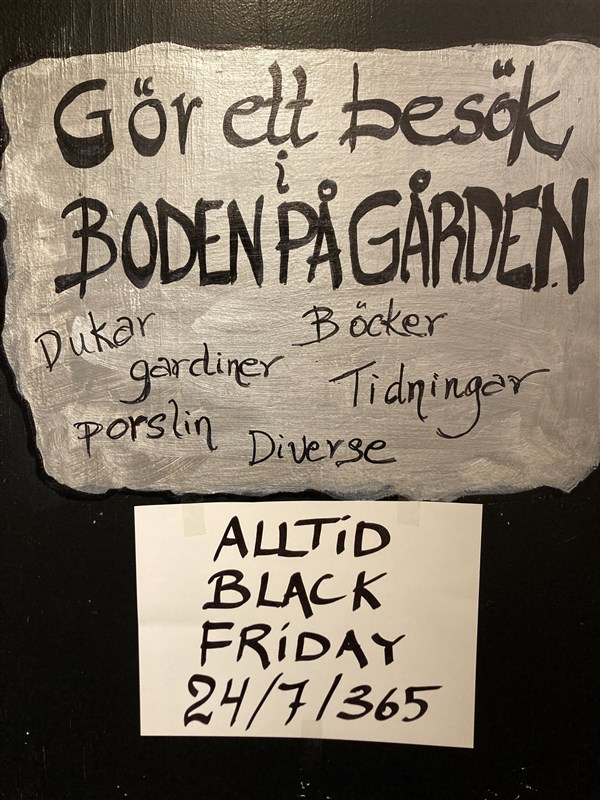 Gör ett besök
i
BODEN PÅ GÅRDEN.
Dukar Böcker
gardiner Tidningar
porslin Diverse
ALLTID
BLACK
FRIDAY
24/7/365